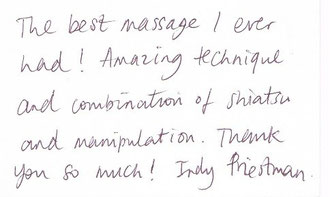 The best massage I ever
had! Amazing technique
and combination of shiatsu
and manipulation. Thank
you so much! Indy Priestman.